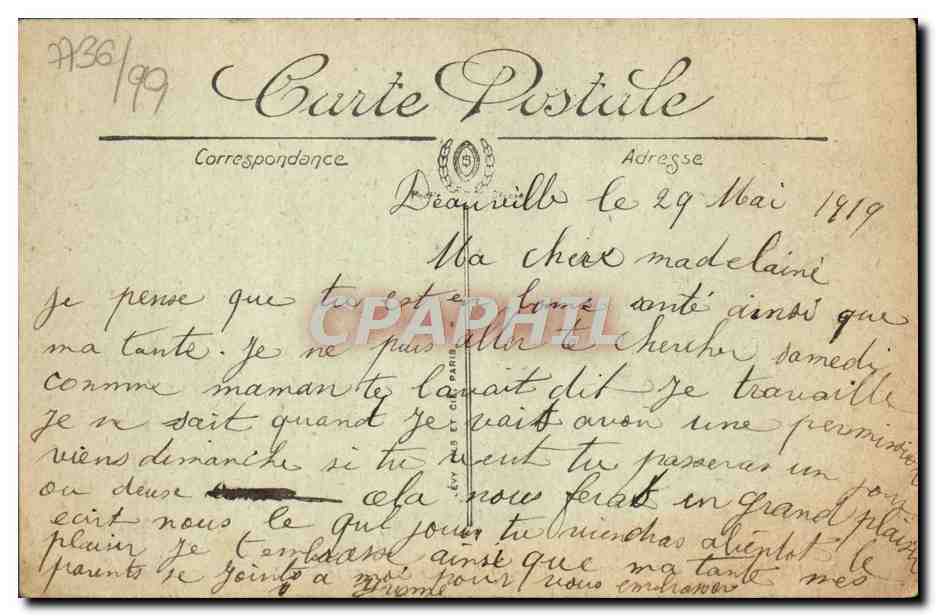 A36/99
Carte Postale
Correspondance
Adresse
Deauville le 29 Mai 1919
Ma chere madelaine
je pense que tu est en bonne santé ainsi que
ma tante. Je ne puis aller te chercher samedi
comme maman te lavait dit je travaille
Je ne sait quand je vait avoir une permission
viens dimanche si tu veut tu passeras un jour
ou deuse cela nous ferat un grand plaisir
ecrit nous le qui jour tu viendras abientot le
plaisir je t'embrasse ainsi que ma tante mes
parents se joints a moi pour vous embrasser
LÉVY FILS ET CIE, PARIS
CPAPHIL